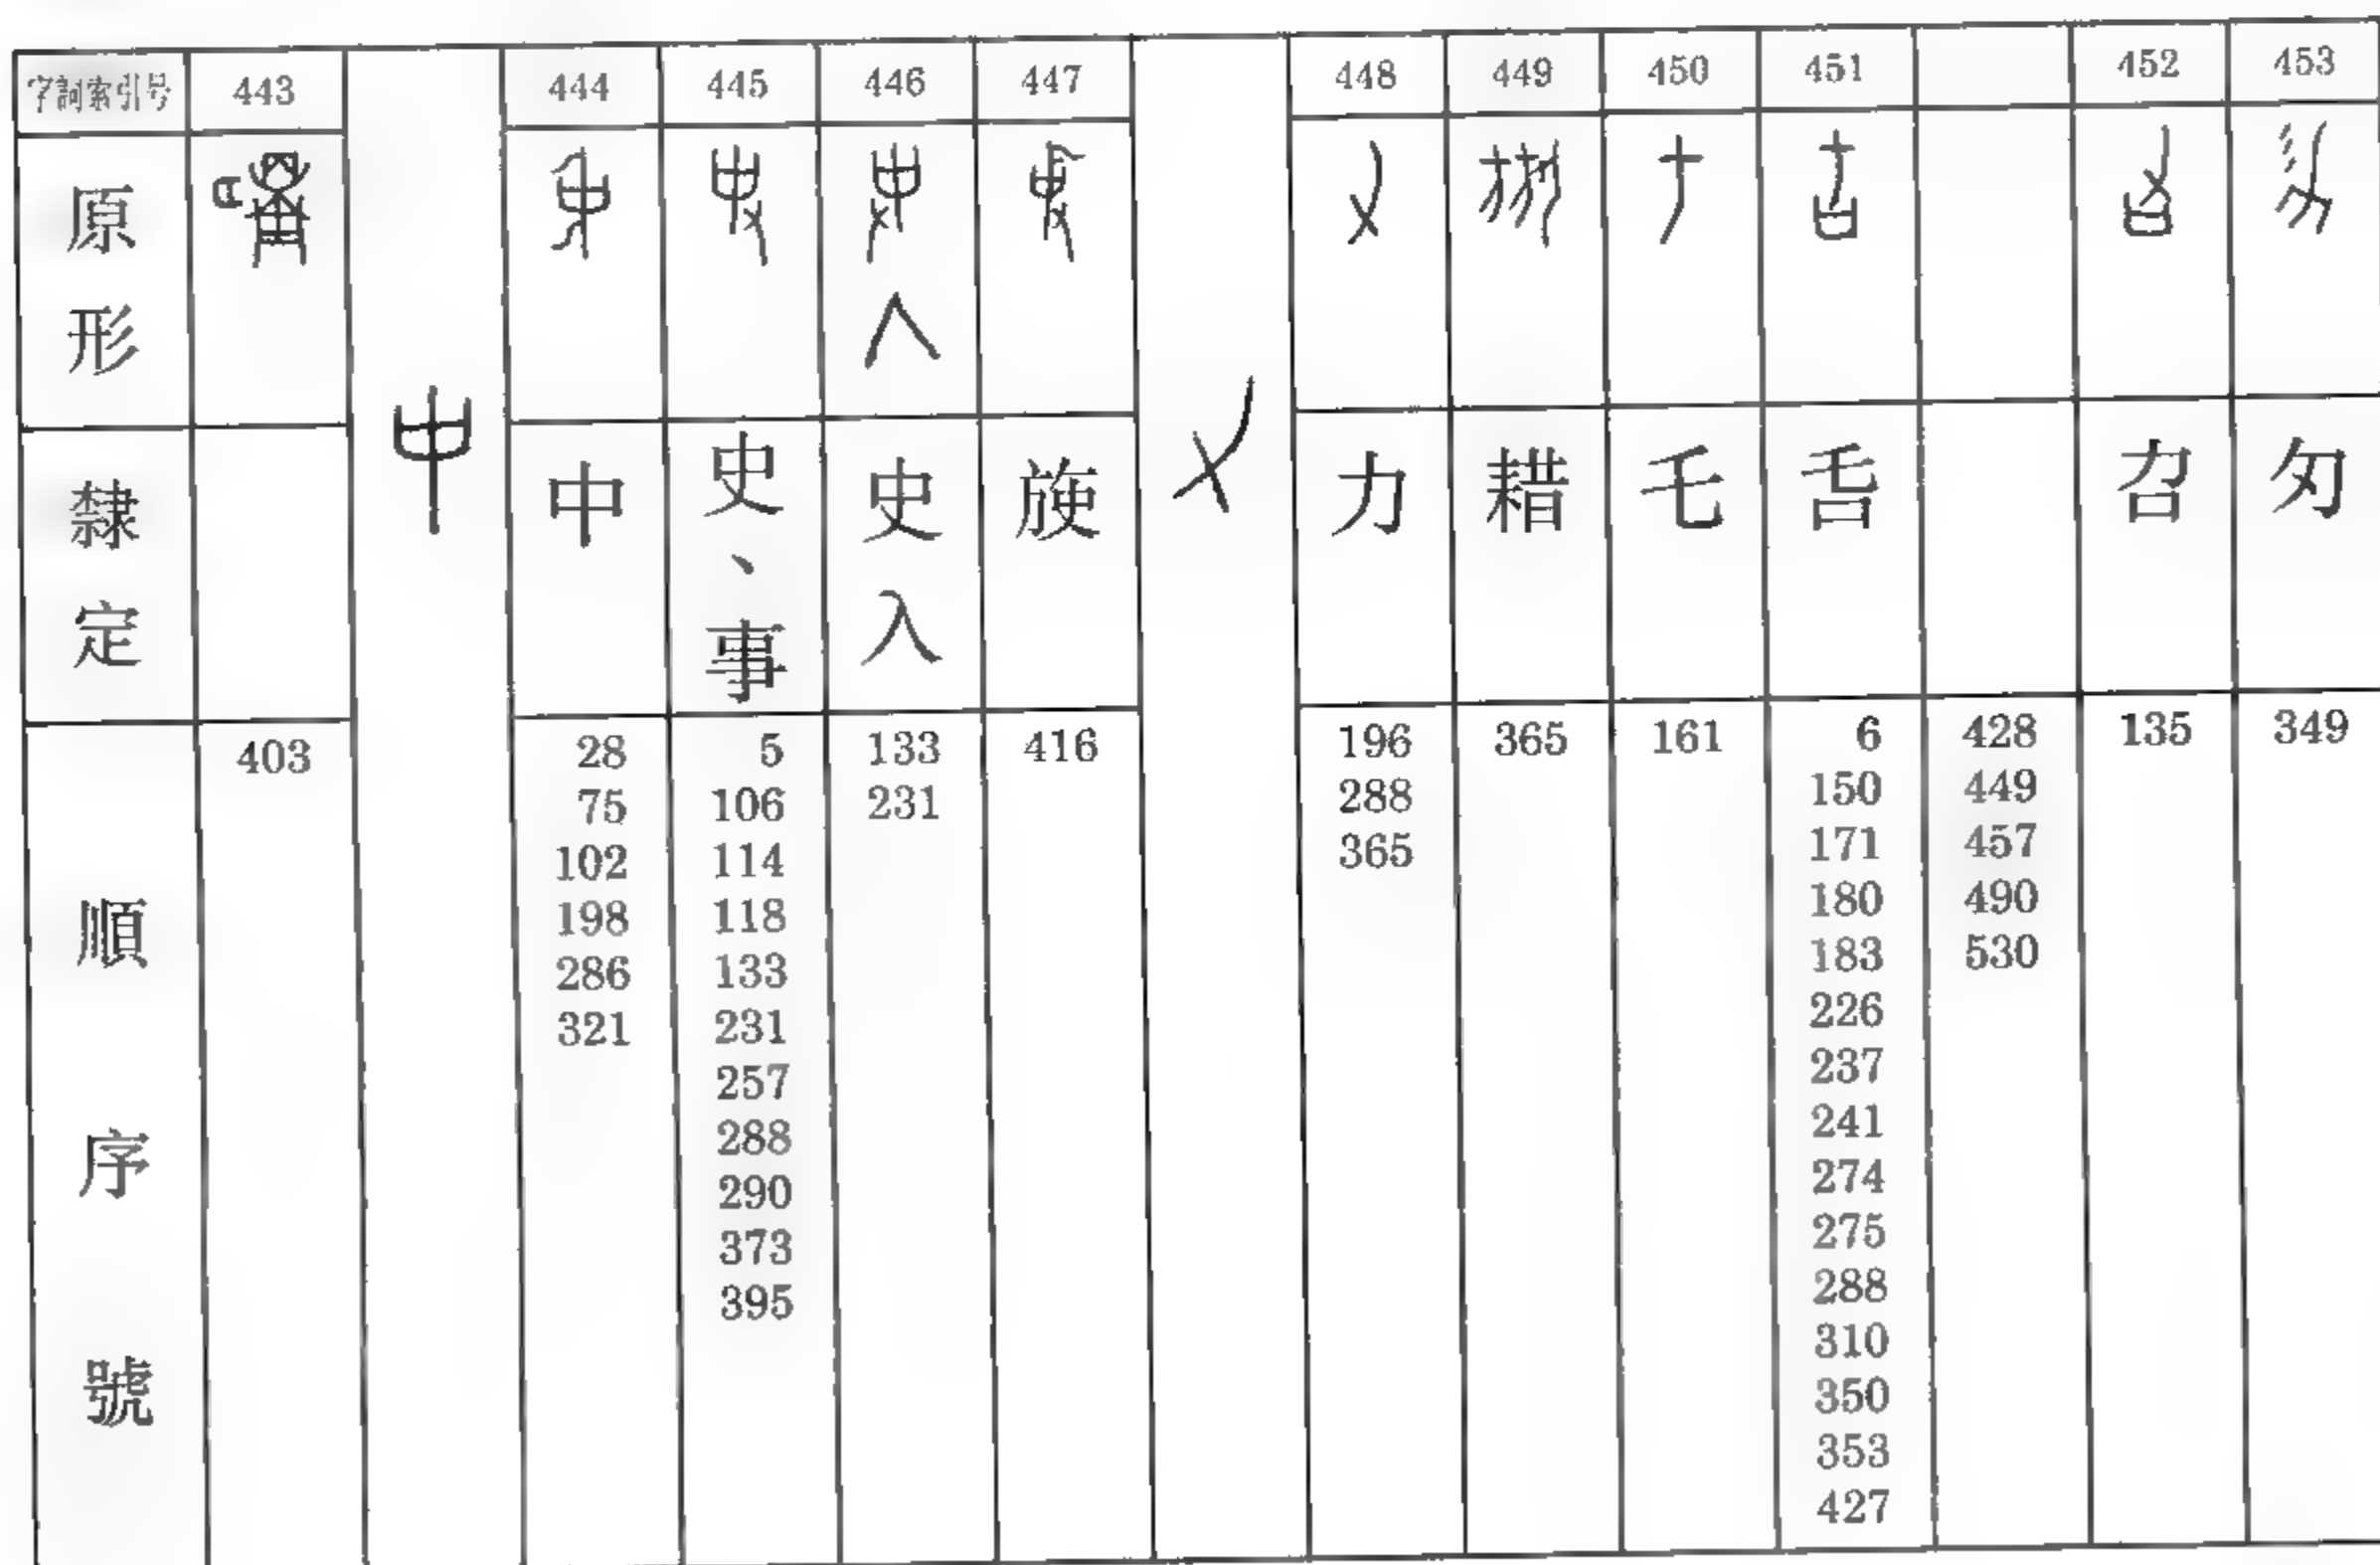 字詞索引号 443 444 445 446 447 448 449 450 451 452 453
原形
隸定 中 史、事 史入 力 耤 乇 舌 召 匁
順序號
403
28 75 102 198 286 321
5 106 114 118 133 231 257 288 290 373 395
133 231
416
196 288 365
365
161
6 150 171 180 183 226 237 241 274 275 288 310 350 353 427
428 449 457 490 530
135
349